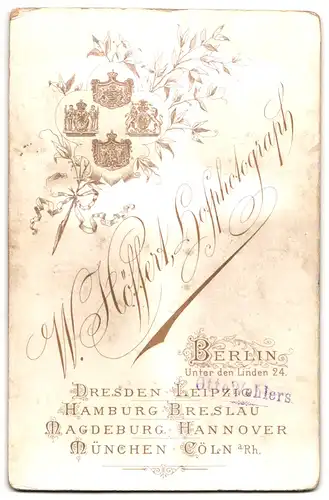 W. Höffert, Hofphotograph
BERLIN
Unter den Linden 24.
DRESDEN · LEIPZIG
HAMBURG · BRESLAU
MAGDEBURG · HANNOVER
MÜNCHEN · CÖLN a/Rh.